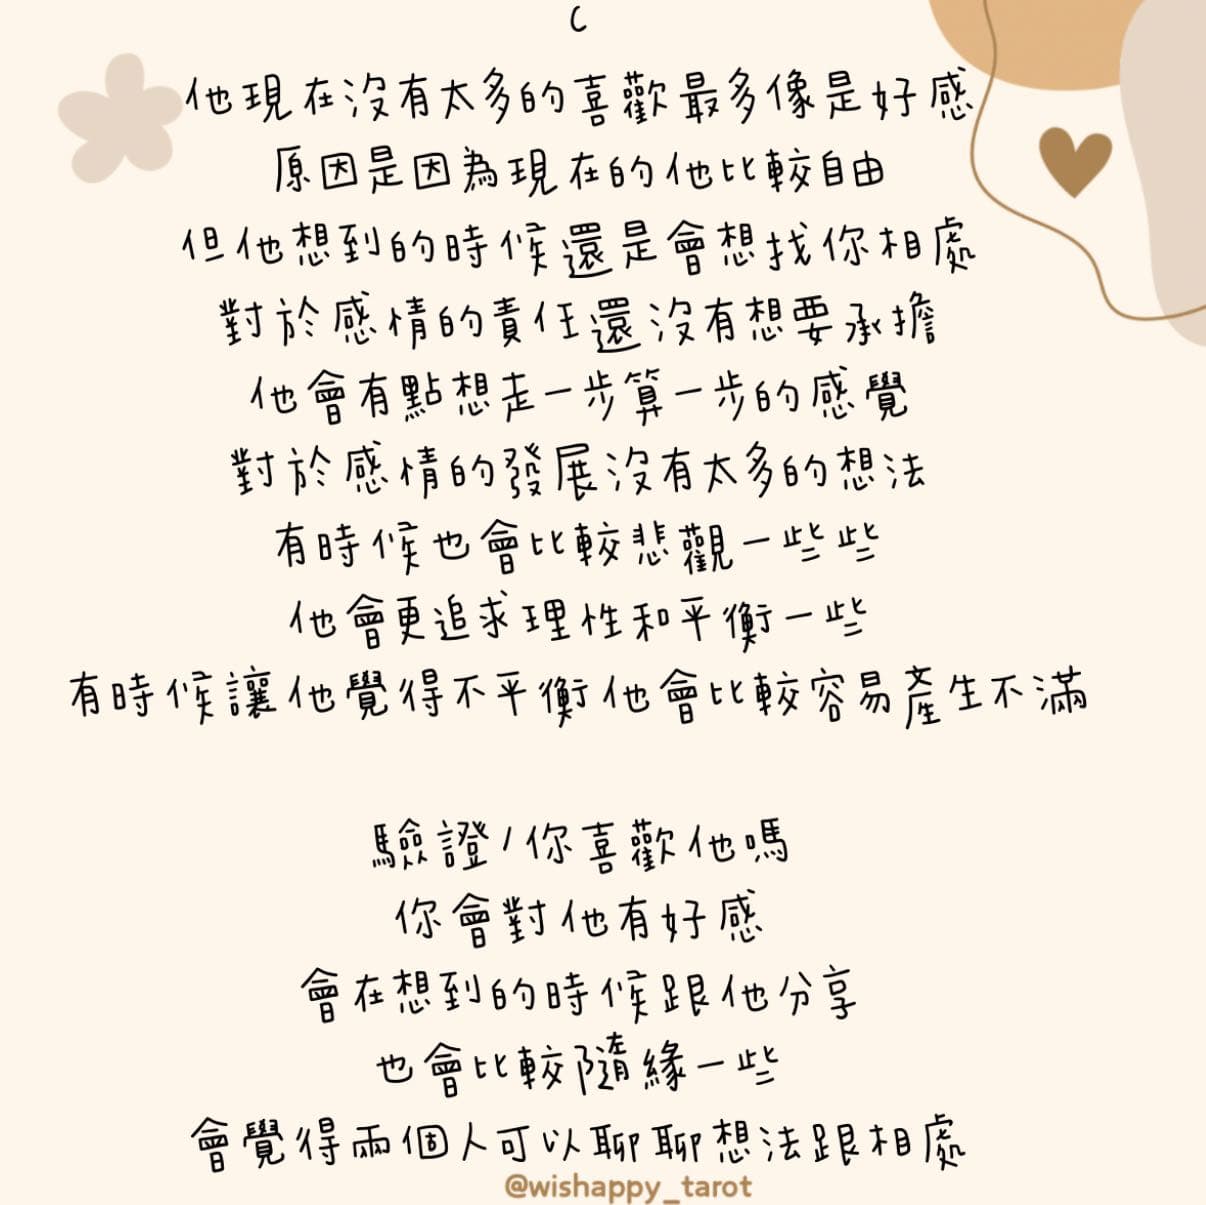 C
他現在沒有太多的喜歡最多像是好感
原因是因為現在的他比較自由
但他想到的時候還是會想找你相處
對於感情的責任還沒有想要承擔
他會有點想走一步算一步的感覺
對於感情的發展沒有太多的想法
有時候也會比較悲觀一些些
他會更追求理性和平衡一些
有時候讓他覺得不平衡他會比較容易產生不滿
驗證/你喜歡他嗎
你會對他有好感
會在想到的時候跟他分享
也會比較隨緣一些
會覺得兩個人可以聊聊想法跟相處
@wishappy_tarot